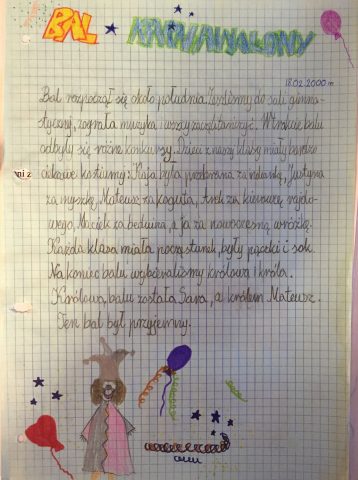 BAL KARNAWAŁOWY
18.02.2000 r.
Bal rozpoczął się około południa. Zeszliśmy do sali gimna-
stycznej, zagrała muzyka i wszyscy zaczęli tańczyć. W trakcie balu
odbyły się różne konkursy. Dzieci z naszej klasy miały bardzo
ciekawe kostiumy: Kaja była przebrana za indiankę, Justyna
za myszkę, Mateusz za koguta, Arek za kierowcę rajdo-
wego, Maciek za beduina, a ja za nowoczesną wróżkę.
Każda klasa miała poczęstunek, były pączki i sok.
Na koniec balu wybieraliśmy królową i króla.
Królową balu została Sara, a królem Mateusz.
Ten bal był przyjemny.